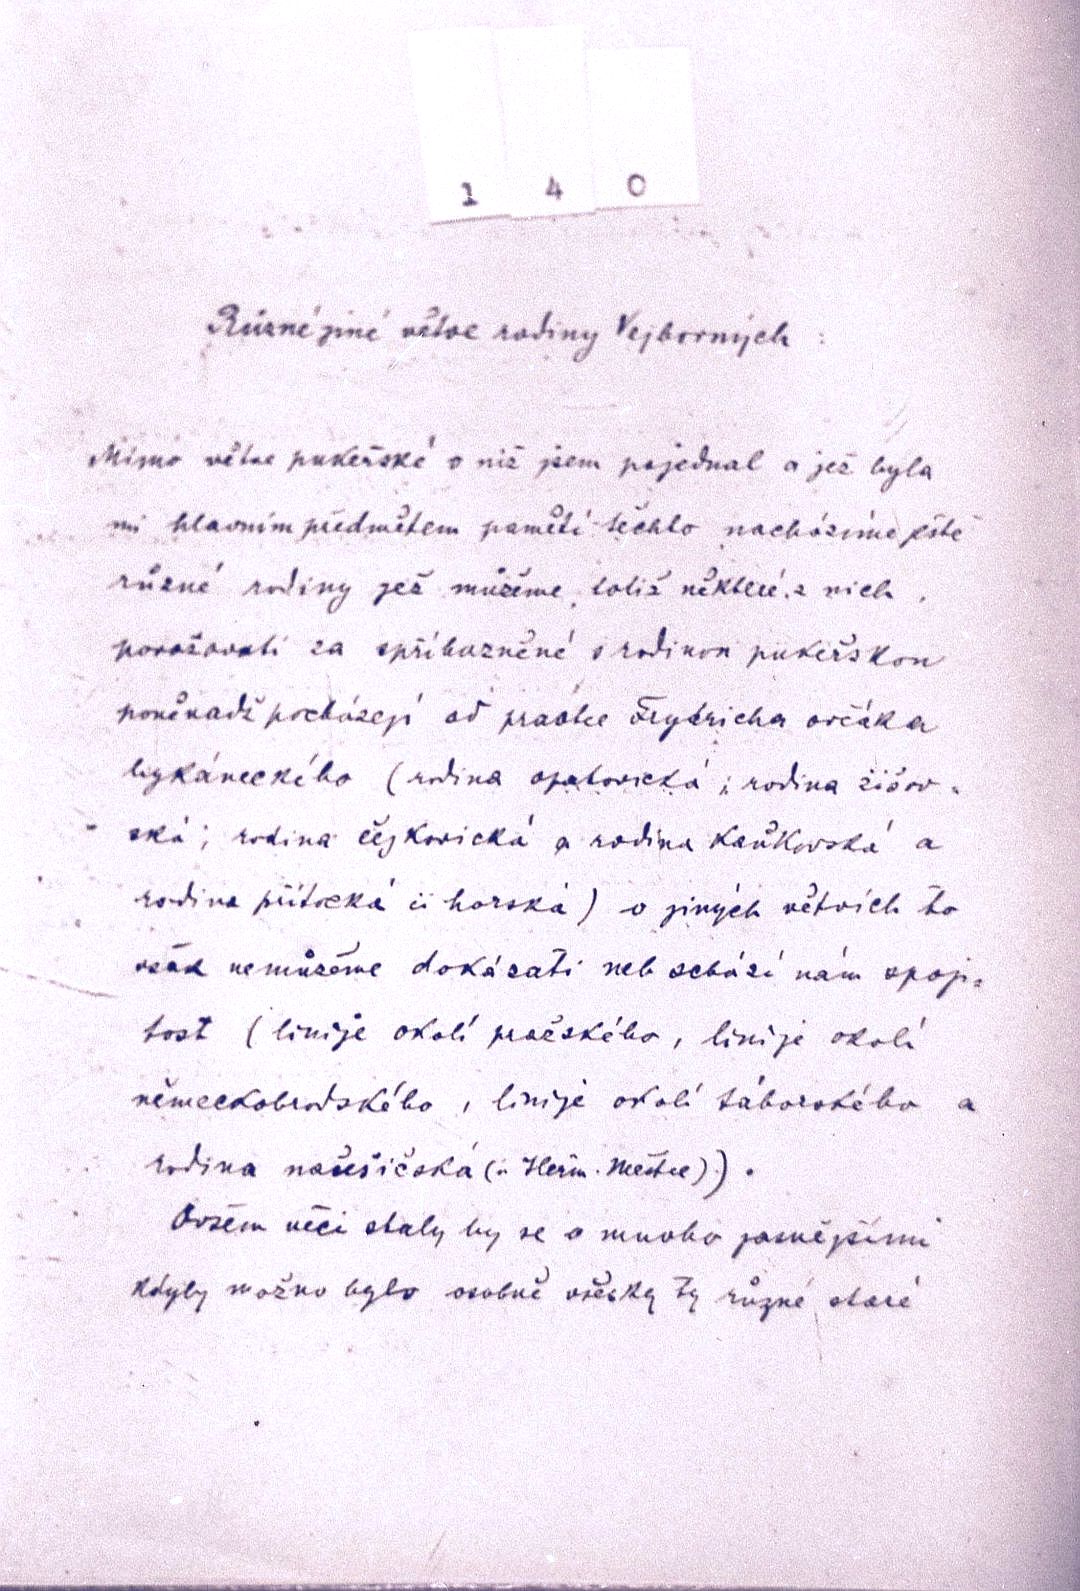 1 4 0
Různé jiné větve rodiny Vejborných :
Mimo větve pukeřské o niž jsem pojednal a jež byla
mi hlavním předmětem pamětí těchto nacházíme ještě
různé rodiny jež můžéme, totiž některé z nich,
považovati za spříbuzněné s rodinou pukeřskou
poněvadž pocházejí od praotce Frydricha ovčáka
bykáneckého (rodina opatovická ; rodina žišov-
ská ; rodina čejkovická a rodina Kaňkovská a
rodina přítocká ii horská) o jiných větvích to
však nemůžéme dokázati neb schází nám spoji-
tost (linije okolí pražského, linije okolí
německobrodského, linije okolí táborského a
rodina načešičská (u Heřm. Městce)).
Ovšem věci staly by se o mnoho jasnějšími
kdyby možno bylo osobně všecky ty různé staré